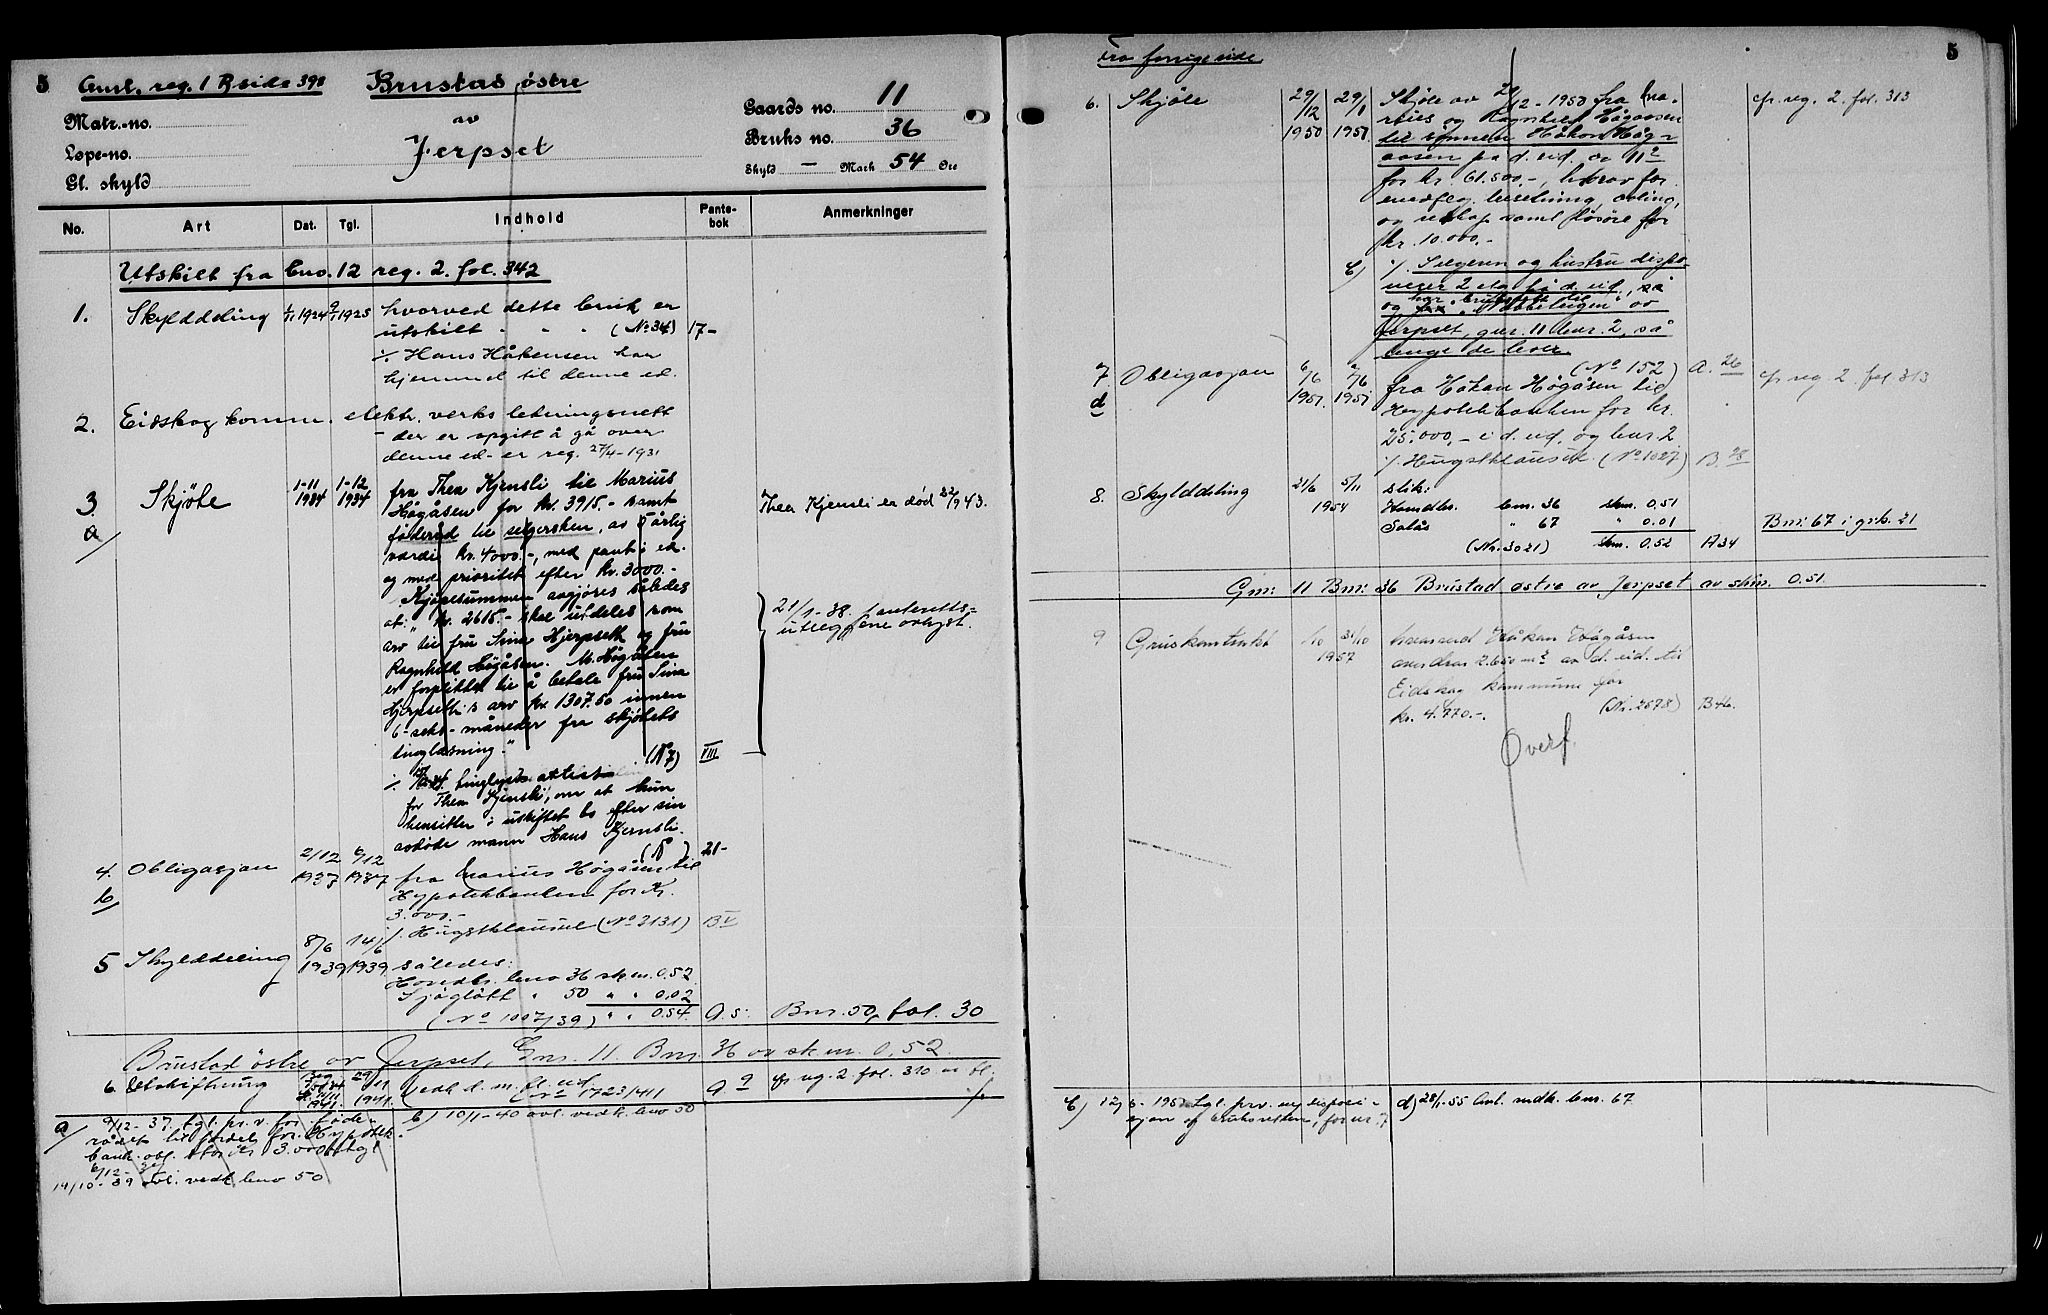 5
Aml. reg. 1 B side 398
Brustad østre
av
Jerpset
Matr.-no.
Løpe-no.
Gl. skyld
Gaards no. 11
Bruks no. 36
Skyld — Mark 54 Øre
No. Art Dat. Tgl. Indhold Pante-bok Anmerkninger
Utskilt fra bno. 12 reg. 2. fol. 342
1. Skylddeling 1924 1925 hvorved dette bruk er
utskilt (No 34) 17-
⁒ Hans Håkensen har
hjemmel til denne ed.
2. Eidskog komm. elektr. verks ledningsnett
- der er opgitt å gå over
denne ed- er reg. 27/4-1931
3 Skjøte 1-11 1934 1-12 1934 fra Thea Kjensli til Marius
a/ Høgåsen for kr. 3915.- samt Thea Kjensli er død 22/9 43.
føderåd til selgersken, av 5årlig
værdi kr. 4000.-, med pant i ed.
og med prioritet efter kr. 3000.-
Kjøpesummen avgjøres således
at: "kr. 2615.- skal utdeles som
arv til fru Sina Hjerpseth og fru
Ragnhild Høgåsen. M. Høgåsen
er forpliktet til å betale fru Sina
Hjerpseth's arv kr. 1307.50 innen
6-seks-måneder fra skjøtets
tinglæsning." (No 7) VIII
21/1-38. panteretts=
utleggene avlyst.
⁒ tinglyst attest
for Thea Kjensli, om at hun
hensitter i uskiftet bo efter sin
avdøde mann Hans Kjernsli.
(No ) 21-
4. Obligasjon 2/12 1937 6/12 1937 fra Marius Høgåsen til
b/ Hypotekbanken for kr.
3.000.-
⁒ Hugstklausul (No 3131) B V
5 Skylddeling 8/6 1939 14/6 1939 således:
Hovedbr. bno 36 skm. 0,52
Sjøgløtt " 50 " " 0,02
(No 1007/39) " " 0.54. A. 5. Bnr. 50, fol. 30
Brustad østre av Jerpset, Gnr. 11. Bnr. 36 av skm. 0,52.
6. Utskiftning 29/11 1941. vedk d. m. fl. eid A 9 cfr reg. 2. fol. 310 m bl.
No 1723/1941
a/ 9/12- 37. tgl. pr. v. for føde-
rådet til fordel for Hypotek-
bank. obl. stor kr 3.000 tgl
6/12-37
14/10-39 avl. vedk bno 50
b) 10/1-40 avl. vedk. bno 50
5
Fra forrige side
6. Skjøte 29/12 1950 29/1 1951 Skjøte av 29/12-1950 fra Ma- cfr. reg. 2. fol. 313
rius og Ragnhild Høgaasen
til sønnen Håkon Høg-
aasen på d. eid. og 11/2
for kr. 61.500,-, herav for
medflg. besetning, avling,
og redskap samt løsøre for
kr. 10.000.-
c) ⁒ Selgeren og hustru dispo-
nerer 2 eta. på d. eid., så
og har bruksrett til
"Nabbstugen" av
Jerpset, gnr. 11 bnr. 2, så
lenge de lever.
(No 152) A. 26
7 Obligasjon 6/6 1951. 9/6. 1951 fra Håkon Høgåsen til cfr reg. 2. fol 313
d Hypotekbanken for kr.
25.000,- i d. eid. og bnr. 2
⁒ Hugstklausul. (No 1027) B. 28
8. Skylddeling 21/6 5/11 1954 slik:
Hovedbr. bnr. 36 skm. 0.51
Solås " 67 " 0.01 Bnr. 67 i grb. 21
(Nr. 3021) skm. 0.52 A 34
Gnr. 11 Bnr. 36 Brustad østre av Jerpset av skm. 0.51.
9 Gruskontrakt 1/10 31/10 1957 hvorved Håkon Høgåsen
overdrar 2.650 m² av d. eid. til
Eidskog kommune for
kr. 4.770.-. (Nr. 2678) B 46.
Overf.
c) 12/6-1951 tgl. prv. ang disposi-
sjon og bruksretten, for nr. 7
d) 28/1-55 Avl. vedk. bnr. 67